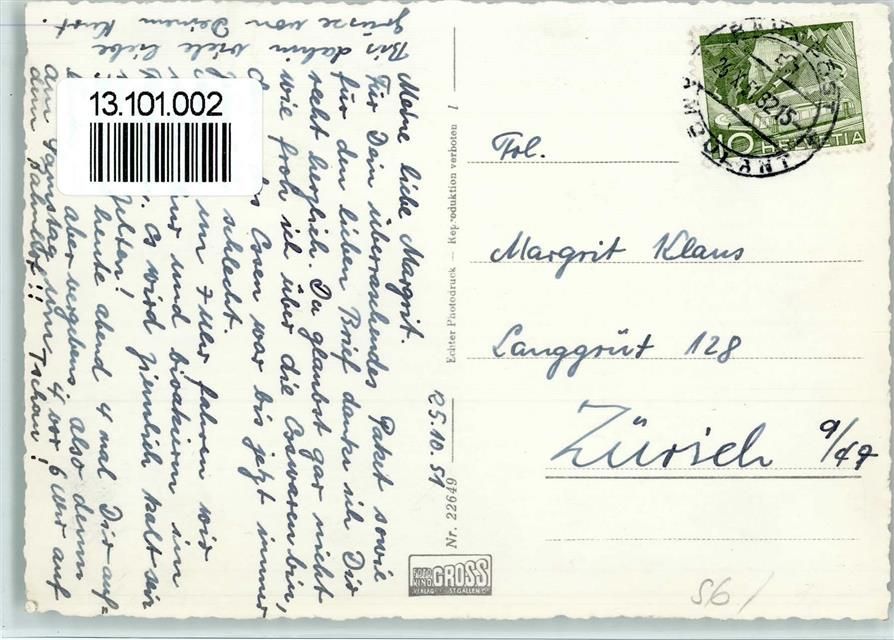 13.101.002
Meine liebe Margrit.
Für Dein überraschendes Paket sowie
für den lieben Brief danke ich Dir
recht herzlich. Du glaubst gar nicht
wie froh ich über die Esswaren bin,
Essen war bis jetzt immer
schlecht.
um 7 Uhr fahren wir
und biwakieren im
Es wird ziemlich kalt sein
Zelten!
heute abend 4 mal Dir auf-
aber vergebens, also denn
am Samstag um 4 vor 6 Uhr auf
dem Bahnhof!! Tschau!
Bis dahin viele liebe
Grüsse von Deinem Kurt.
25.10.51
Echter Photodruck — Reproduktion verboten !
Nr. 22649
FOTO
KINO GROSS
VERLAG ST. GALLEN
10 HELVETIA
Frl.
Margrit Klaus
Langgrüt 128
Zürich 9/47
S6/